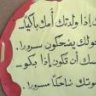 إذا ولدتك أمك باكيًا..
حولك يضحكون سرورا.
ـسك أن تكون إذا بكو..
ـوتك ضاحكًا مسرورا.